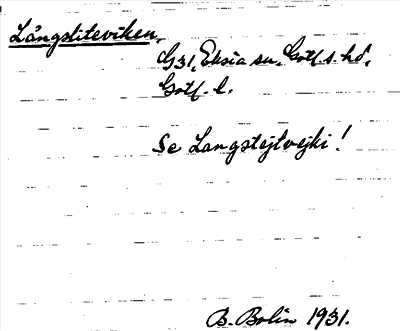 Långsliteviken,
G31, Eksta sn. Gotl. s. hd.
Gotl. l.
Se Langstejtvejki!
B. Bolin 1931.